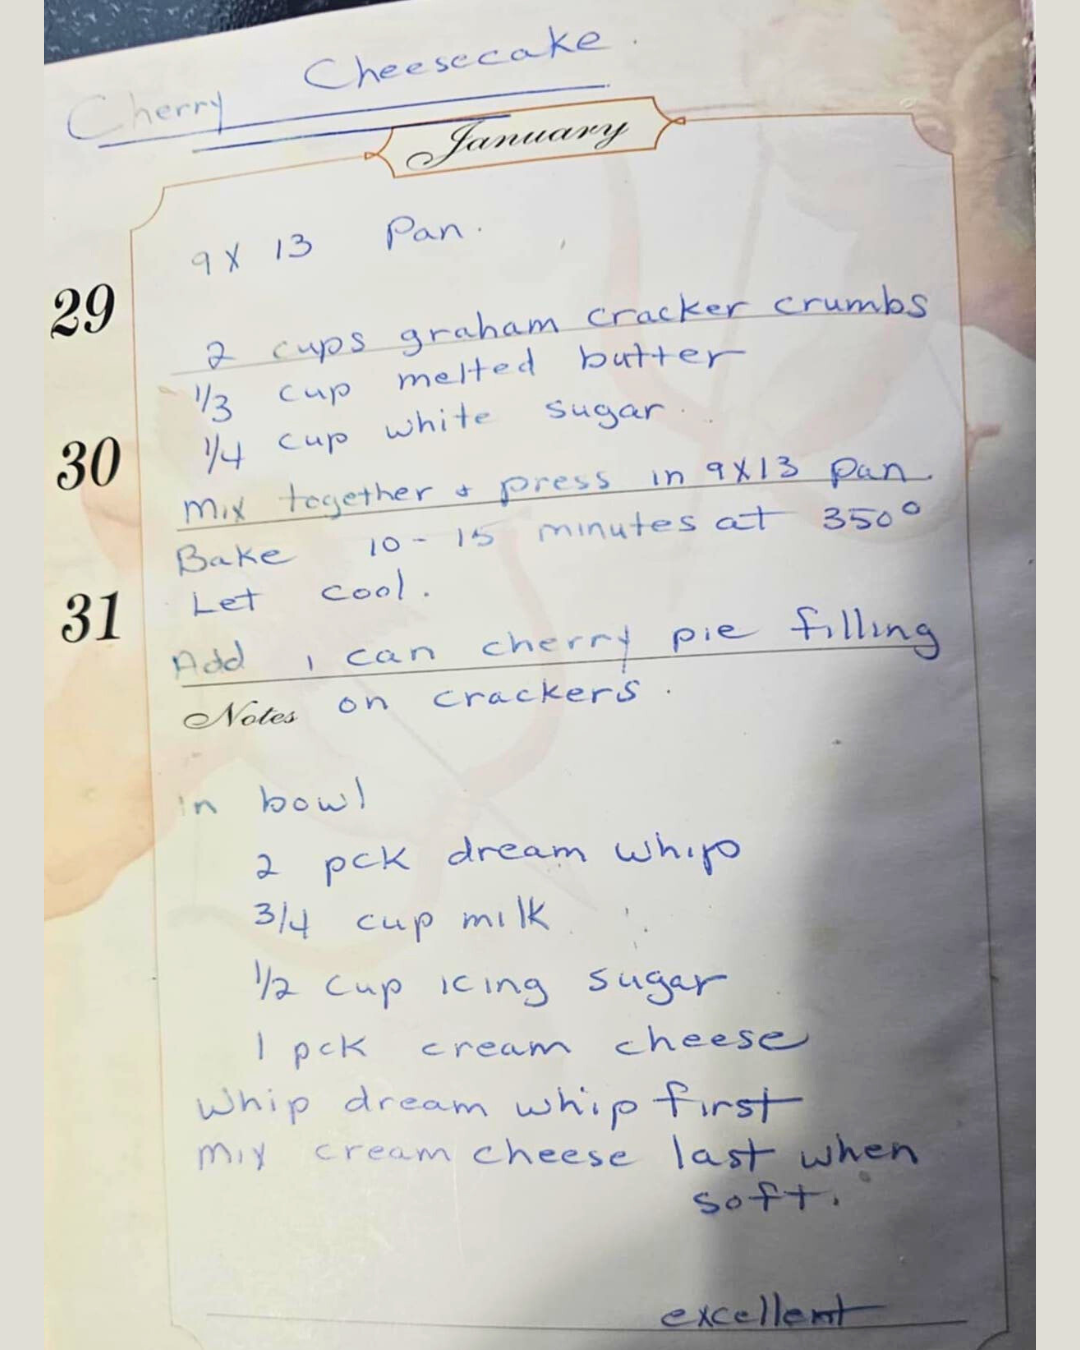 Cherry Cheesecake.
January
9 X 13 Pan.
29
2 cups graham cracker crumbs
1/3 cup melted butter
1/4 cup white sugar.
30
Mix together & press in 9X13 pan
Bake 10 - 15 minutes at 350°
Let cool.
31
Add 1 can cherry pie filling
Notes on crackers.
in bowl
2 pck dream whip
3/4 cup milk
1/2 cup icing sugar
1 pck cream cheese
Whip dream whip first
Mix cream cheese last when
soft.
excellent